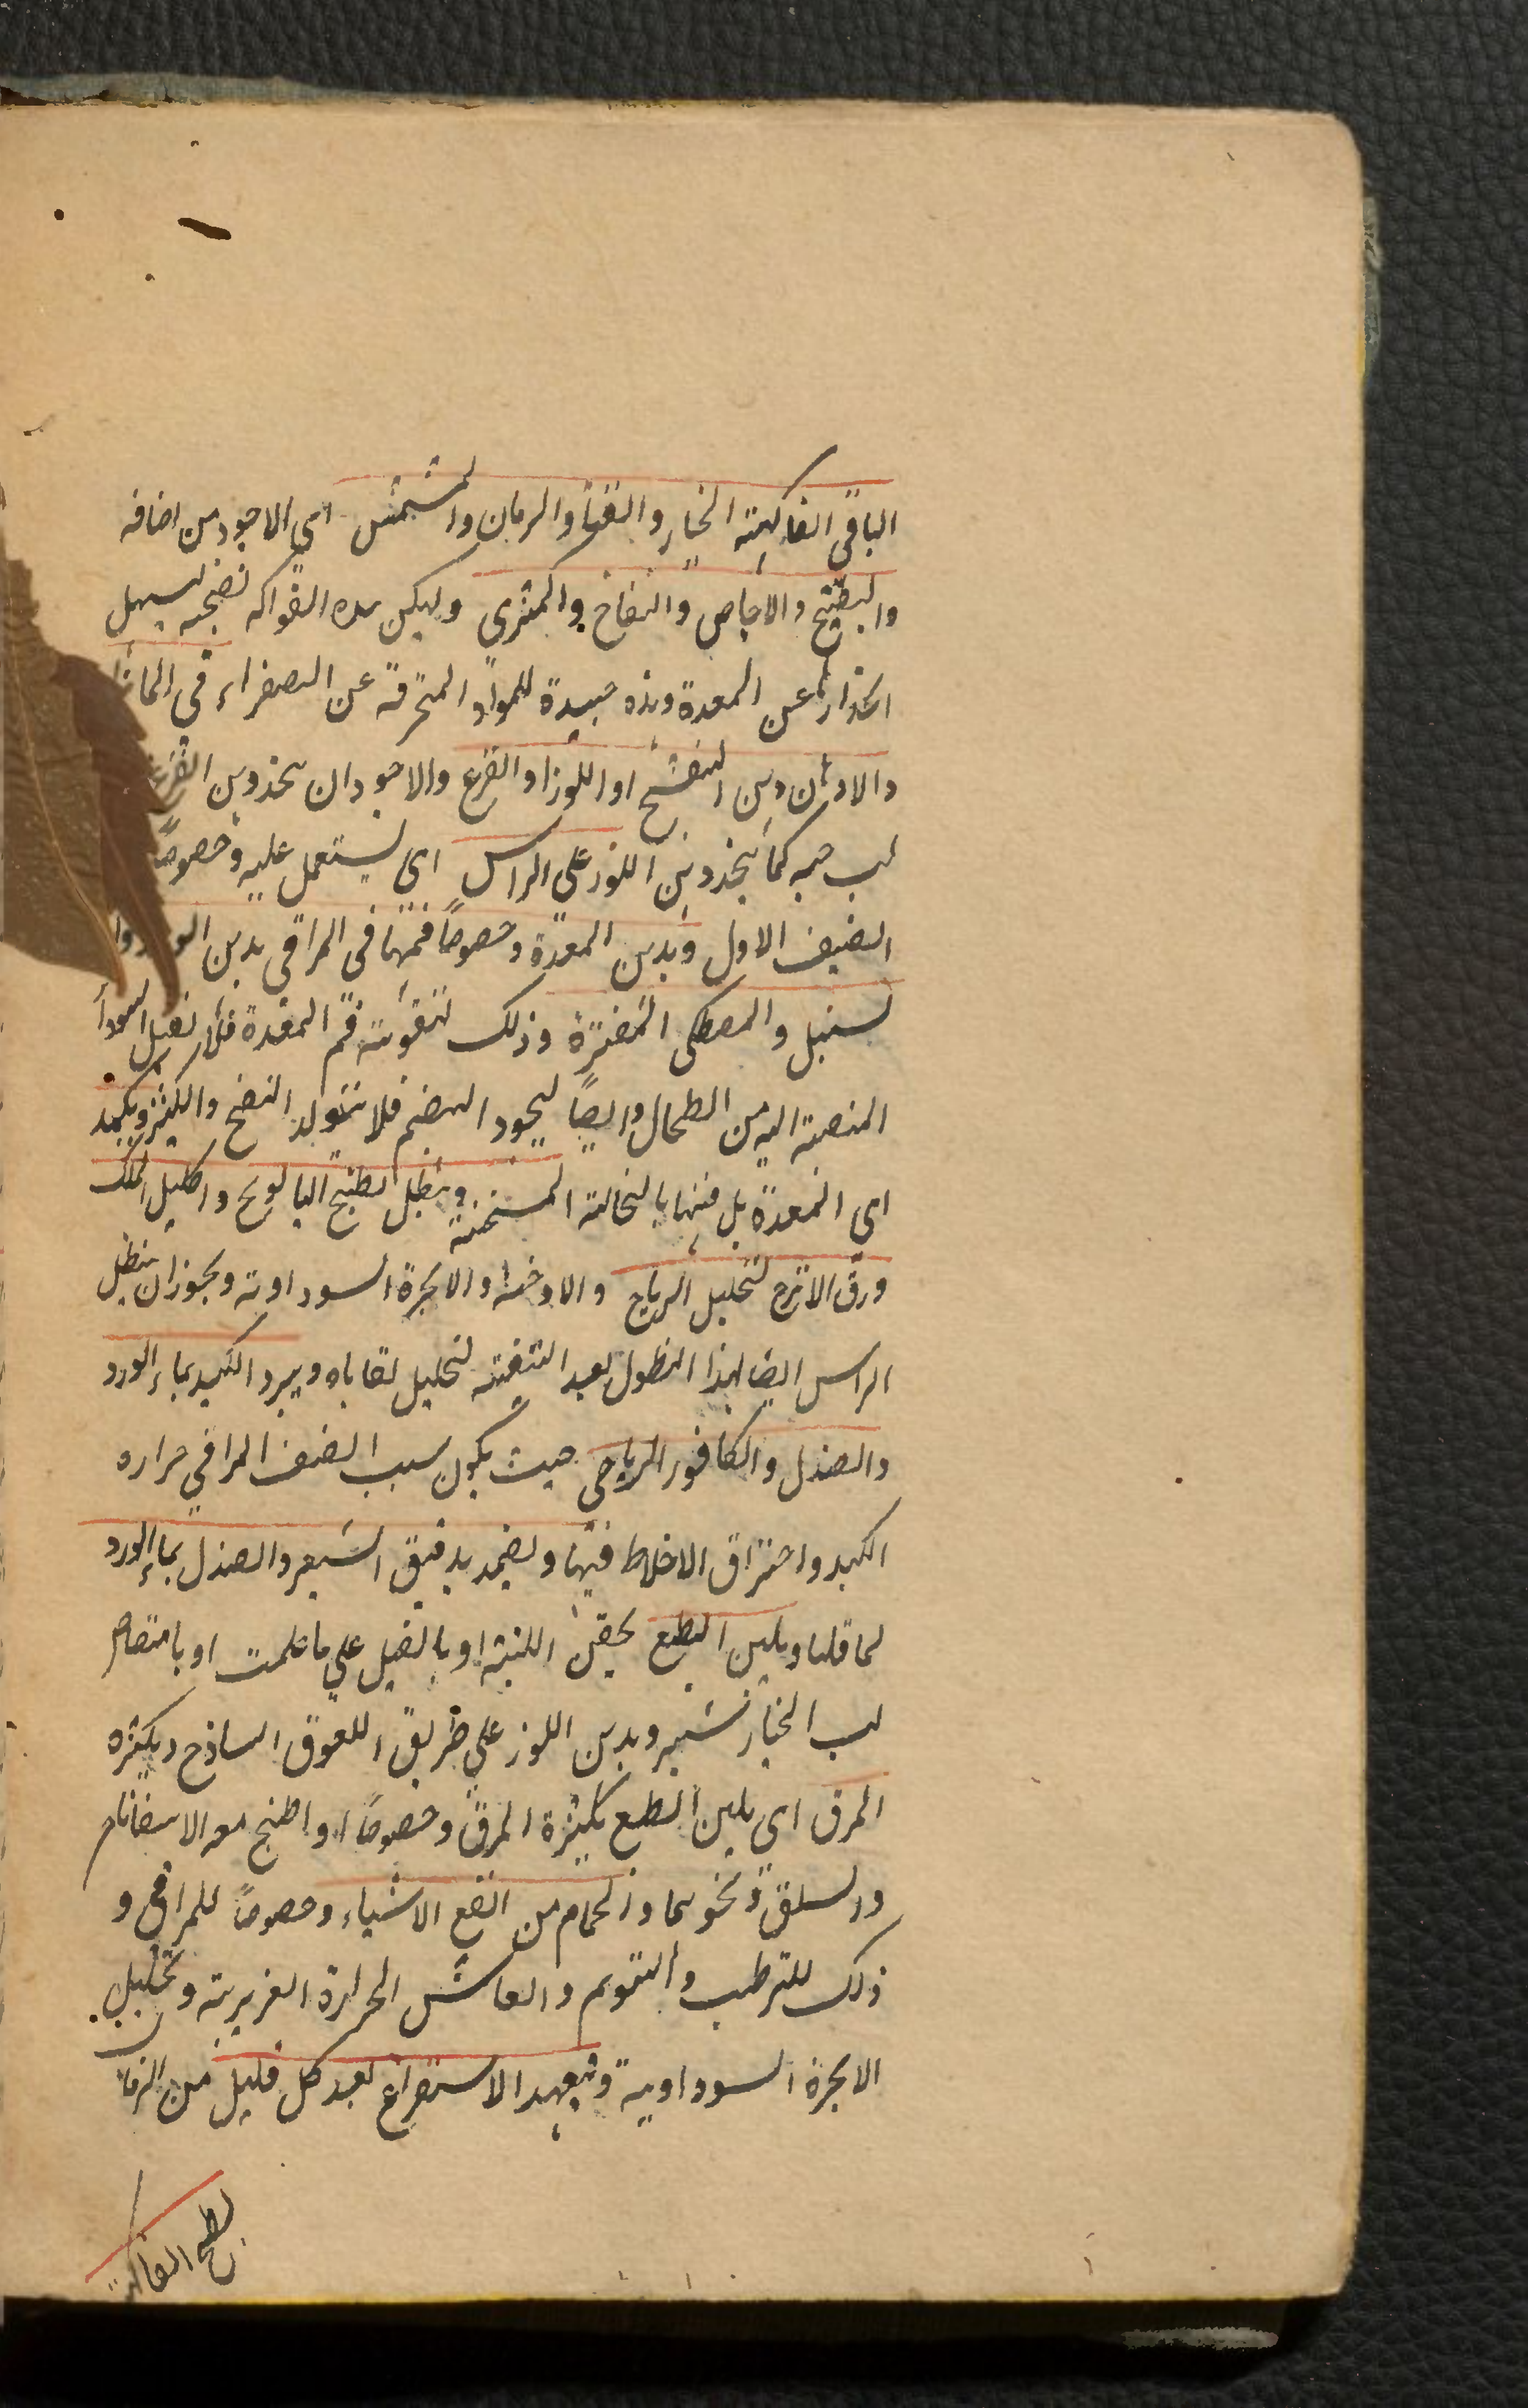 الباقي الفاكهة الخيار والقثا والرمان والمشمش اي الاجود من اضافه
والبطيخ والاجاص والتفاح والكمثرى وليكن هذه الفواكه نضجه ليسهل
انحدارها عن المعدة وهذه جيدة للمواد المحترقة عن الصفراء في
والادهان دهن البنفسج او اللوز او القرع والاجود ان يتخذ دهن القرع
لب حبه كما يتخذ دهن اللوز على الراس اي يستعمل عليه وخصوصا
الصنف الاول ويدهن المعدة وخصوصا فمها في المراقي بدهن
لسنبل والمصطكى المفترة وذلك لتقوية فم المعدة فلا تقبل السودا
المنصبة اليه من الطحال وايضا ليجود الهضم فلا يتولد النفخ والكثر ويكمد
اي المعدة بل فمها بالنخالة المسخنة وينطل بطبيخ البابونج واكليل الملك
ورق الاترج لتحليل الرياح والادخنة والابخرة السوداوية ويجوز ان ينطل
الراس ايضا بهذا النطول بعد التنقية لتحليل بقاياه ويبرد الكبد بماء الورد
والصندل والكافور الرياحي حيث يكون سبب الصنف المراقي حراره
الكبد واحتراق الاخلاط فيها ويضمد بدقيق الشعير والصندل بماء الورد
لما قلنا ويلين الطبع بحقن اللينة او بالفتل على ما علمت او بامتصاص
لب الخيار شنبر وبدهن اللوز على طريق اللعوق الساذج وبكثره
المرق اي يلين الطبع بكثرة المرق وخصوصا اذا طبخ معه الاسفاناخ
والسلق ونحوهما والحمام من انفع الاشياء وخصوصا للمراقي و
ذلك للترطيب والتنويم وانعاش الحرارة الغريزية وتحليل
الابخرة السوداوية وتعهد الاستفراغ بعد كل قليل من الزمان
بطبخ الفاكهة